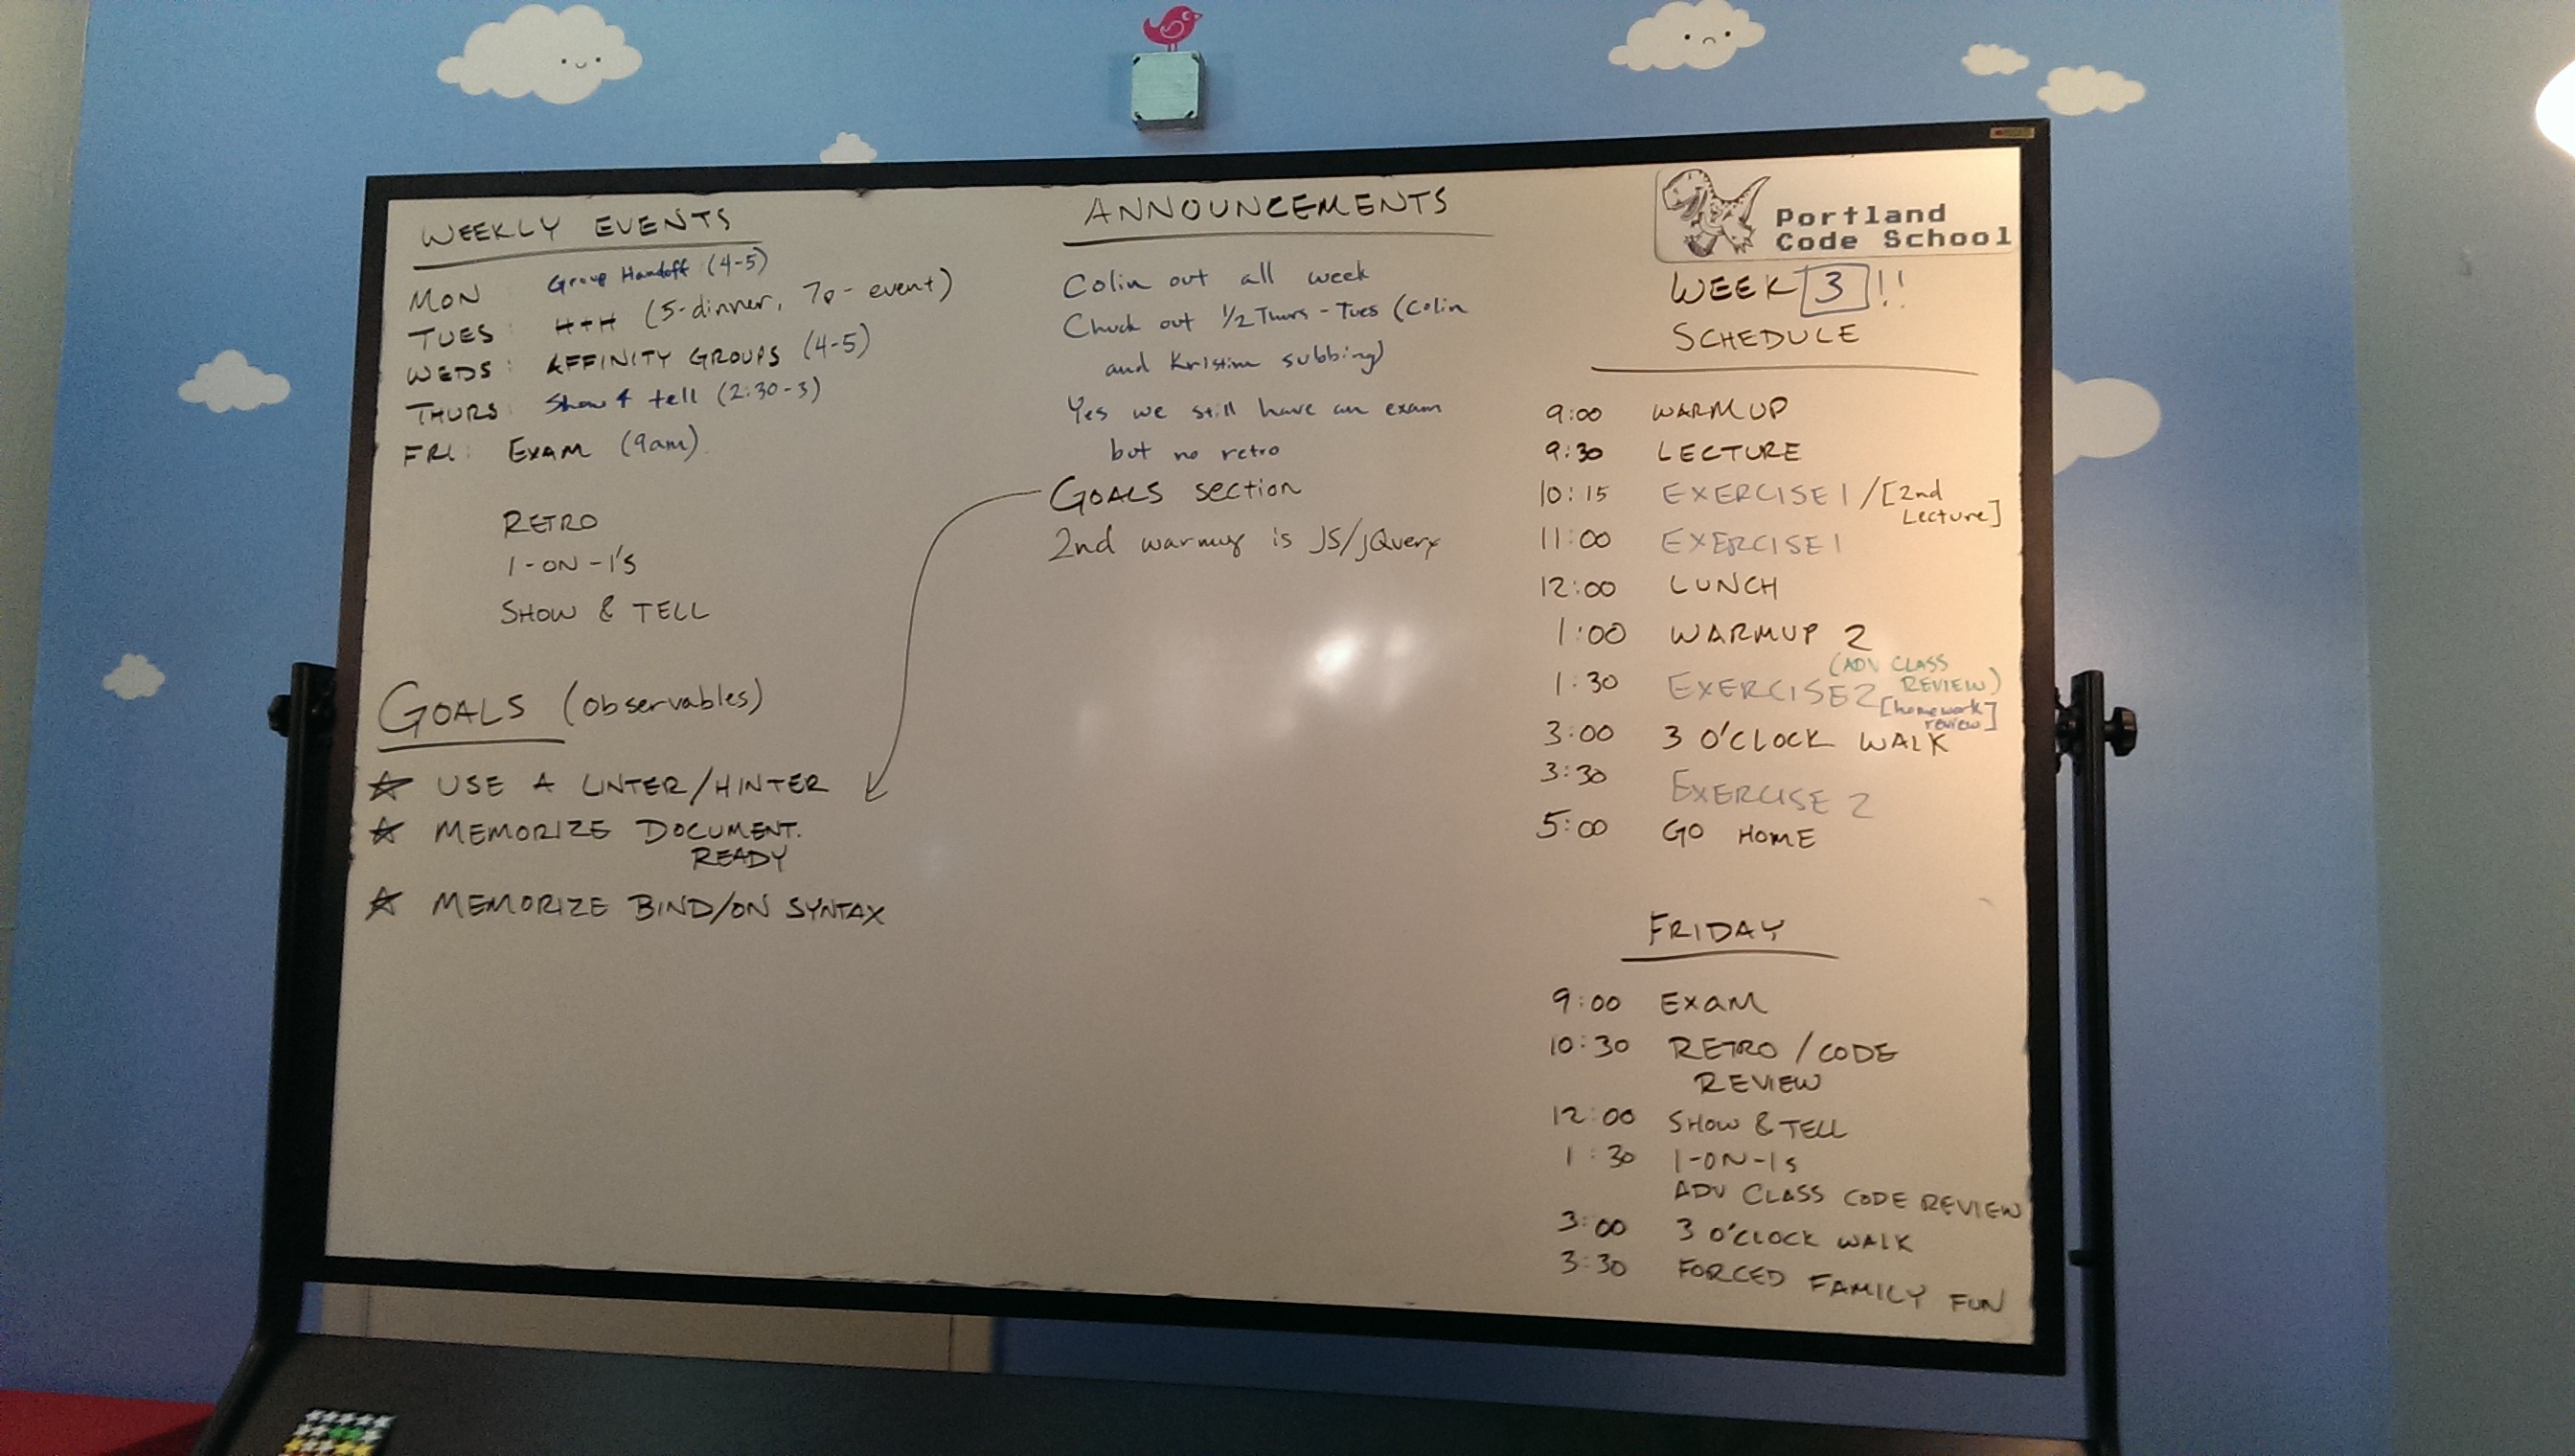 WEEKLY EVENTS
MON Group Handoff (4-5)
TUES: H+H (5-dinner, 7p-event)
WEDS: AFFINITY GROUPS (4-5)
THURS: Show & tell (2:30-3)
FRI: EXAM (9am)
RETRO
1-ON-1'S
SHOW & TELL
GOALS (observables)
☆ USE A LINTER/HINTER
☆ MEMORIZE DOCUMENT.
READY
☆ MEMORIZE BIND/ON SYNTAX
ANNOUNCEMENTS
Colin out all week
Chuck out 1/2 Thurs - Tues (Colin
and Kristine subbing)
Yes we still have an exam
but no retro
GOALS section
2nd warmup is JS/jQuery
Portland
Code School
WEEK 3!!
SCHEDULE
9:00 WARMUP
9:30 LECTURE
10:15 EXERCISE 1 / [2nd
Lecture]
11:00 EXERCISE 1
12:00 LUNCH
1:00 WARMUP 2
(ADV CLASS
REVIEW)
1:30 EXERCISE 2
[homework
review]
3:00 3 O'CLOCK WALK
3:30 EXERCISE 2
5:00 GO HOME
FRIDAY
9:00 EXAM
10:30 RETRO / CODE
REVIEW
12:00 SHOW & TELL
1:30 1-ON-1s
ADV CLASS CODE REVIEW
3:00 3 O'CLOCK WALK
3:30 FORCED FAMILY FUN